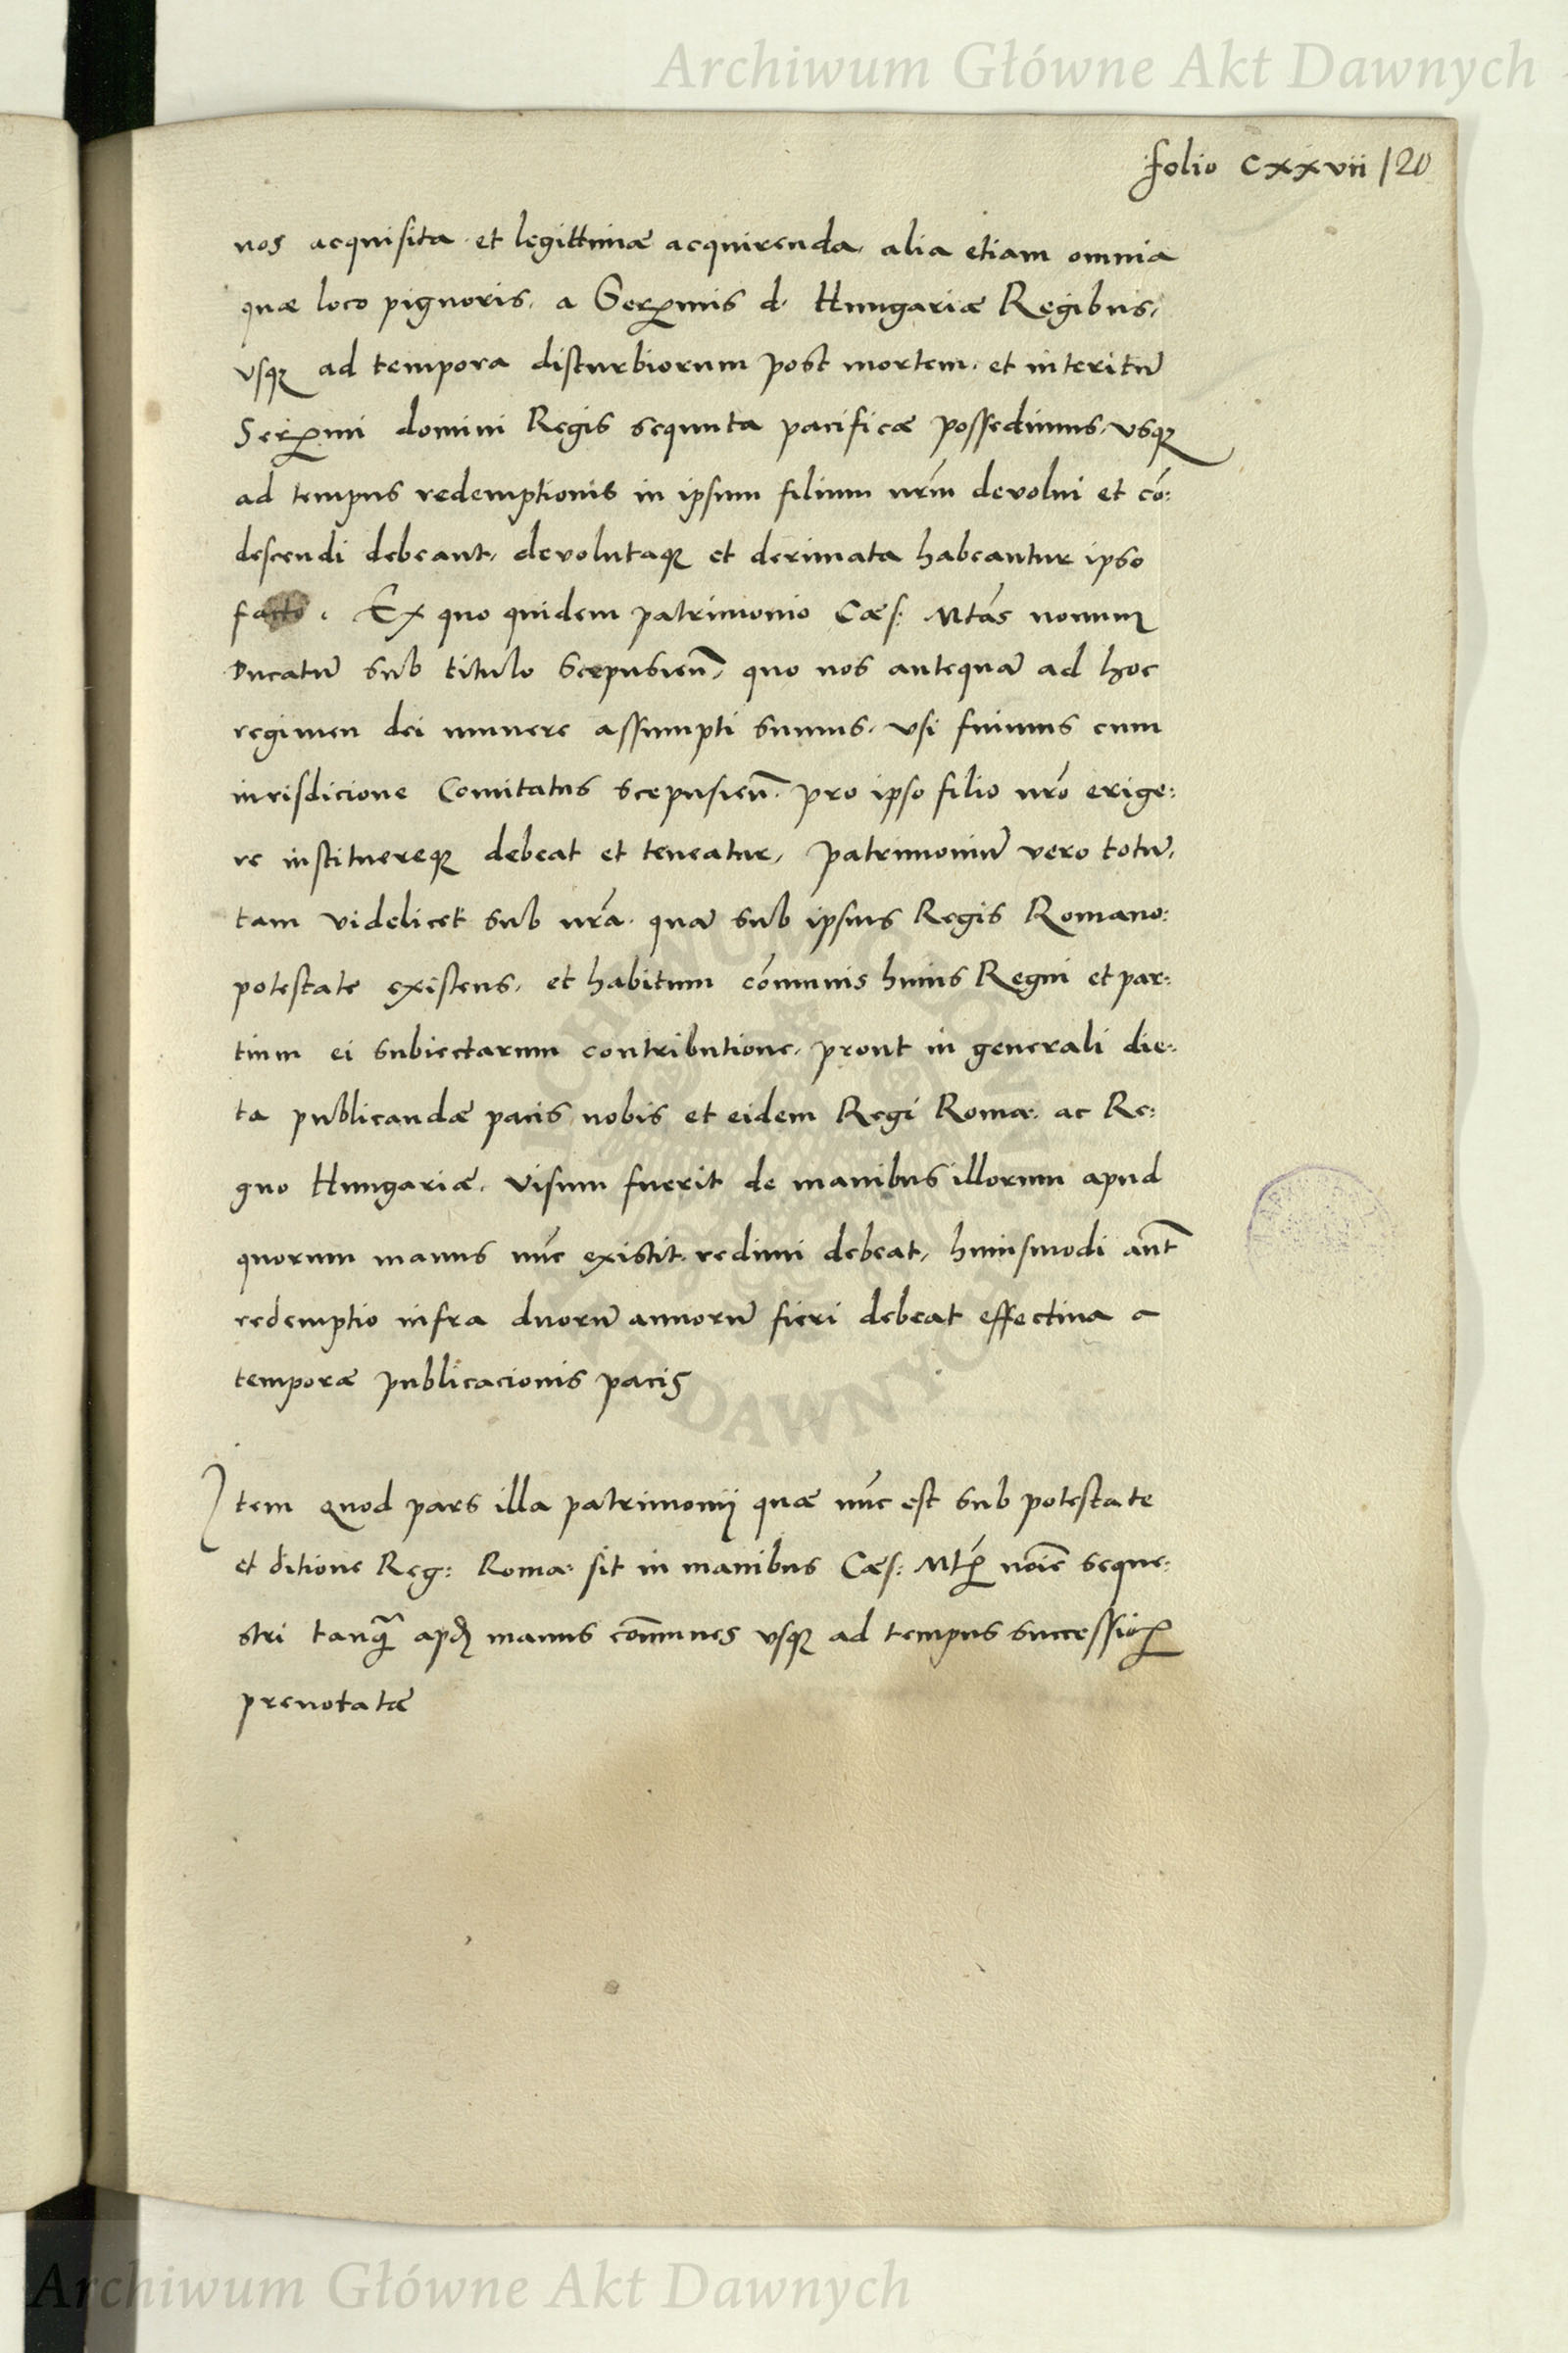 Archiwum Główne Akt Dawnych
folio cxxvii /20
nos acquisita et legittimæ acquirenda, alia etiam omnia
quæ loco pignoris, a Serᵐmis d. Hungariæ Regibus,
vsqȝ ad tempora disturbiorum post mortem, et interitū
Serᵐmi domini Regis sequuta pacificæ possedimus, vsqȝ
ad tempus redemptionis in ipsum filium nr̃m devolui et cō:
descendi debeant, devolutaqȝ et deriuata habeantur ipso
facto. Ex quo quidem patrimonio Cæs: Mtas nouum
Ducatū sub titulo Scepusień, quo nos antequā ad hoc
regimen dei munere assumpti sumus, vsi fuimus cum
iurisdicione Comitatus scepusień. pro ipso filio nr̃o erige:
re instituereqȝ debeat et teneatur, patrimoniū vero totū,
tam videlicet sub nr̃a. quā sub ipsius Regis Romano:
potestate existens, et habitum cōmunis huius Regni et par:
tium ei subiectarum contributione, prout in generali die:
ta publicandæ pacis nobis et eidem Regi Roma: ac Re:
gno Hungariæ, visum fuerit de manibus illorum apud
quorum manus nūc existit redimi debeat, huiusmodi aūt
redemptio infra duorū annorū fieri debeat effectiua a
temporæ publicacionis pacis
Item quod pars illa patrimonij quæ nūc est sub potestate
et ditione Reg: Roma: sit in manibus Cæs: Mtis noīe seque:
stri tanq̃ apd manus cōmunes vsqȝ ad tempus successionis
prenotatæ
ARCHIWUM GŁÓWNE AKT DAWNYCH
Archiwum Główne Akt Dawnych